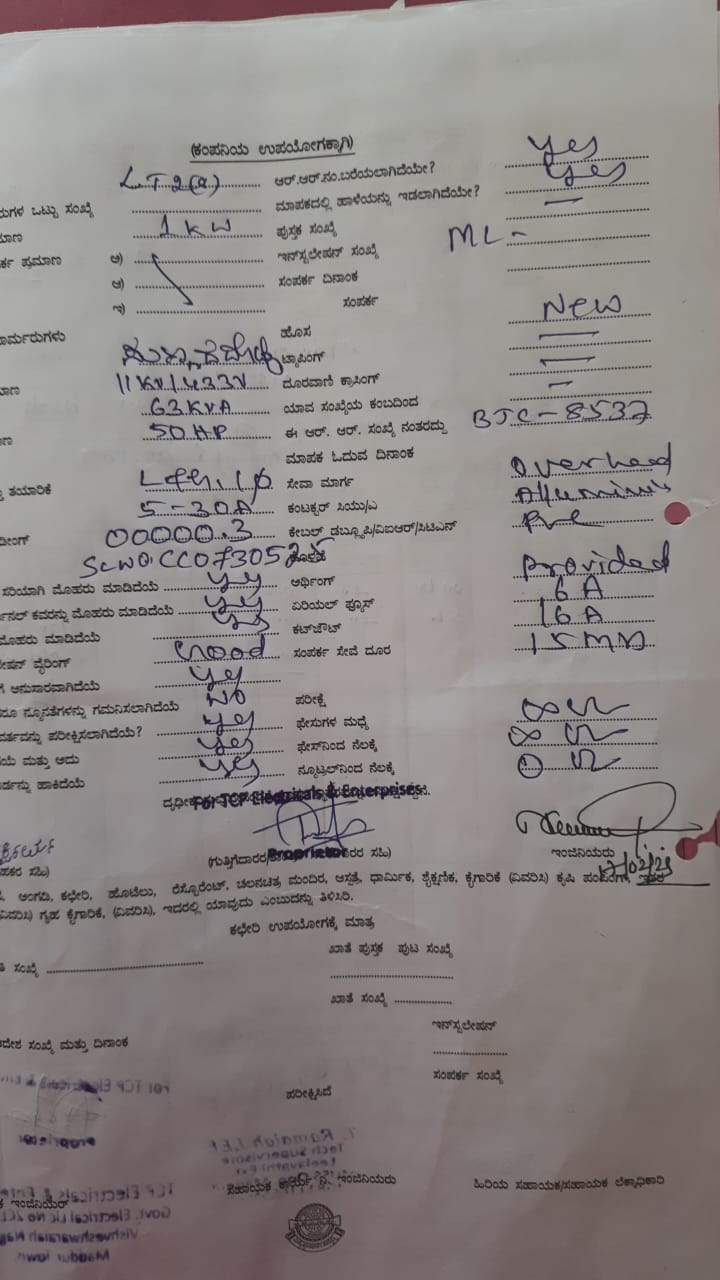 (ಕಂಪನಿಯ ಉಪಯೋಗಕ್ಕಾಗಿ)
LT2(a) ಆರ್.ಆರ್.ನಂ.ಬರೆಯಲಾಗಿದೆಯೇ? Yes
ರುಗಳ ಒಟ್ಟು ಸಂಖ್ಯೆ ಮಾಪಕದಲ್ಲಿ ಹಾಳೆಯನ್ನು ಇಡಲಾಗಿದೆಯೇ? Yes
ಮಾಣ 1 KW ಪುಸ್ತಕ ಸಂಖ್ಯೆ —
ರ್ಕ ಪ್ರಮಾಣ ಅ) ಇನ್‌ಸ್ಟಲೇಷನ್ ಸಂಖ್ಯೆ ML -
ಆ) ಸಂಪರ್ಕ ದಿನಾಂಕ
ಇ) ಸಂಪರ್ಕ
ಾರ್ಮರುಗಳು ಹೊಸ New
ಟ್ಯಾಪಿಂಗ್ —
ಮಾಣ 11KV/433V ದೂರವಾಣಿ ಕ್ರಾಸಿಂಗ್ —
63KVA ಯಾವ ಸಂಖ್ಯೆಯ ಕಂಬದಿಂದ —
50HP ಈ ಆರ್. ಆರ್. ಸಂಖ್ಯೆ ನಂತರದ್ದು BJC-8537
ಮಾಪಕ ಓದುವ ದಿನಾಂಕ
ತಯಾರಿಕೆ ಸೇವಾ ಮಾರ್ಗ Overhead
5-30A ಕಂಟಕ್ಟರ್ ಸಿಯು/ಎ
ಡಿಂಗ್ 00000.3 ಕೇಬಲ್ ಡಬ್ಲ್ಯೂಪಿ/ವಿಐಆರ್/ಸಿಟಿಎನ್ PVC
ಸರಿಯಾಗಿ ಮೊಹರು ಮಾಡಿದೆಯೆ Yes ಅರ್ಥಿಂಗ್ Provided
ನಲ್ ಕವರನ್ನು ಮೊಹರು ಮಾಡಿದೆಯೆ Yes ಏರಿಯಲ್ ಫ್ಯೂಸ್ 16A
ಮೊಹರು ಮಾಡಿದೆಯೆ Yes ಕಟ್‌ಔಟ್ 16A
ಷನ್ ವೈರಿಂಗ್ Good ಸಂಪರ್ಕ ಸೇವೆ ದೂರ 15 Mtr
ಅನುಸಾರವಾಗಿದೆಯೆ Yes
ರೂ ನ್ಯೂನತೆಗಳನ್ನು ಗಮನಿಸಲಾಗಿದೆಯೆ No ಪರೀಕ್ಷೆ
ವರ್ತವನ್ನು ಪರೀಕ್ಷಿಸಲಾಗಿದೆಯೆ? Yes ಫೇಸುಗಳ ಮಧ್ಯೆ ∞ Ω
ಯೆ ಮತ್ತು ಅದು Yes ಫೇಸ್‌ನಿಂದ ನೆಲಕ್ಕೆ ∞ Ω
ರ್ಡನ್ನು ಹಾಕಿದೆಯೆ Yes ನ್ಯೂಟ್ರಲ್‌ನಿಂದ ನೆಲಕ್ಕೆ 0 Ω
For TCP Electricals & Enterprises
Proprietor
(ಗುತ್ತಿಗೆದಾರರ ರರ ಸಹಿ) ಇಂಜಿನಿಯರು
ಹಕರ ಸಹಿ) 17/02/23
ಅಂಗಡಿ, ಕಛೇರಿ, ಹೊಟೆಲು, ರೆಸ್ಟೋರೆಂಟ್, ಚಲನಚಿತ್ರ ಮಂದಿರ, ಆಸ್ಪತ್ರೆ, ಧಾರ್ಮಿಕ, ಶೈಕ್ಷಣಿಕ, ಕೈಗಾರಿಕೆ (ವಿವರಿಸಿ) ಕೃಷಿ ಪಂಪಿಂಗ್, ಇತರೆ
(ವಿವರಿಸಿ) ಗೃಹ ಕೈಗಾರಿಕೆ, (ವಿವರಿಸಿ), ಇದರಲ್ಲಿ ಯಾವುದು ಎಂಬುದನ್ನು ತಿಳಿಸಿರಿ.
ಕಛೇರಿ ಉಪಯೋಗಕ್ಕೆ ಮಾತ್ರ
ಖಾತೆ ಪುಸ್ತಕ ಪುಟ ಸಂಖ್ಯೆ
ಸಂಖ್ಯೆ
ಖಾತೆ ಸಂಖ್ಯೆ
ಇನ್‌ಸ್ಟಲೇಷನ್
ದೇಶ ಸಂಖ್ಯೆ ಮತ್ತು ದಿನಾಂಕ
ಸಂಪರ್ಕ ಸಂಖ್ಯೆ
ಪರೀಕ್ಷಿಸಿದೆ
ಇಂಜಿನಿಯರ್ ಸಹಾಯಕ ಕಾರ್ಯ ನಿ. ಇಂಜಿನಿಯರು ಹಿರಿಯ ಸಹಾಯಕ/ಸಹಾಯಕ ಲೆಕ್ಕಾಧಿಕಾರಿ